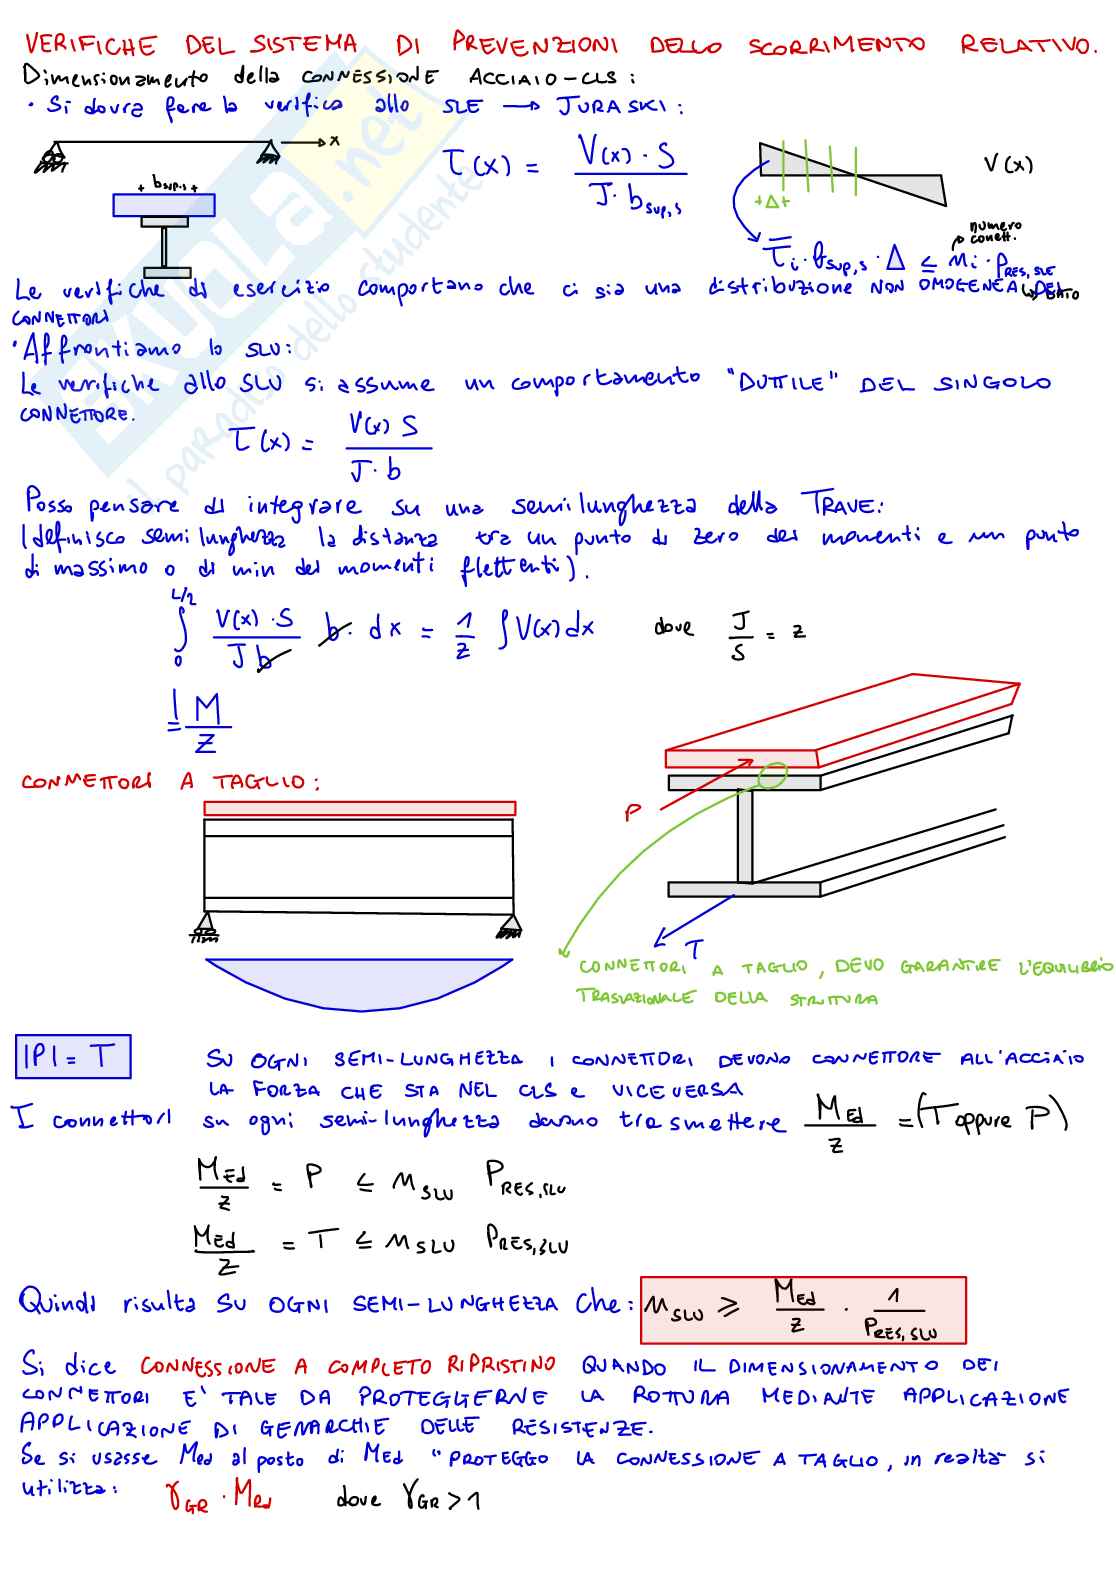 VERIFICHE DEL SISTEMA DI PREVENZIONI DELLO SCORRIMENTO RELATIVO.
Dimensionamento della CONNESSIONE ACCIAIO-CLS:
• Si dovrà fare la verifica allo SLE → JURASKI:
x
τ(x) = V(x)·S / J·b_sup,s
V(x)
+ b_sup,s +
+Δ+
numero conett.
τ̅_i · b_sup,s · Δ ≤ n_i · P_RES,SLE
Le verifiche di esercizio comportano che ci sia una distribuzione NON OMOGENEA DEI
CONNETTORI
• Affrontiamo lo SLU:
Le verifiche allo SLU si assume un comportamento "DUTTILE" DEL SINGOLO
CONNETTORE.
τ(x) = V(x) S / J·b
Posso pensare di integrare su una semilunghezza della TRAVE:
(definisco semilunghezza la distanza tra un punto di zero dei momenti e un punto
di massimo o di min dei momenti flettenti).
∫₀^{L/2} V(x)·S / J b b· dx = 1/z ∫V(x)dx dove J/S = z
= M/z
CONNETTORI A TAGLIO:
P
T
CONNETTORI A TAGLIO, DEVO GARANTIRE L'EQUILIBRIO
TRASLAZIONALE DELLA STRUTTURA
|P| = T
SU OGNI SEMI-LUNGHEZZA I CONNETTORI DEVONO CONNETTORE ALL'ACCIAIO
LA FORZA CHE STA NEL CLS e VICEVERSA
I connettori su ogni semi-lunghezza devono trasmettere M_Ed/z = (T oppure P)
M_Ed/z = P ≤ n_SLU P_RES,SLU
M_Ed/z = T ≤ n_SLU P_RES,SLU
Quindi risulta SU OGNI SEMI-LUNGHEZZA che: n_SLU ≥ M_Ed/z · 1/P_RES,SLU
Si dice CONNESSIONE A COMPLETO RIPRISTINO QUANDO IL DIMENSIONAMENTO DEI
CONNETTORI E' TALE DA PROTEGGERNE LA ROTTURA MEDIANTE APPLICAZIONE
APPLICAZIONE DI GERARCHIE DELLE RESISTENZE.
Se si usasse M_Rd al posto di M_Ed "PROTEGGO LA CONNESSIONE A TAGLIO, in realtà si
utilizza: γ_GR · M_Rd dove γ_GR > 1
SKUOLA.net
il paradiso dello studente